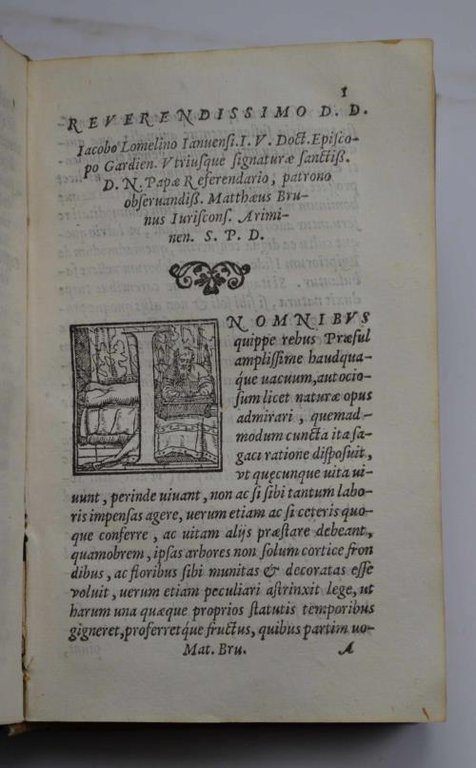 1
REVERENDISSIMO D. D.
Iacobo Lomelino Ianuensi. I. V. Doct. Episco-
po Gardien. Vtriusque signaturæ sanctiß.
D. N. Papæ Referendario, patrono
obseruandiß. Matthæus Bru-
nus Iuriscons. Arimi-
nen. S. P. D.
IN OMNIBVS
quippe rebus Præsul
amplissime haudqua-
q́ue uacuum, aut ocio-
sum licet naturæ opus
admirari, quemad-
modum cuncta ita sa-
gaci ratione disposuit,
vt quęcunque uita ui-
uunt, perinde uiuant, non ac si sibi tantum labo-
ris impensas agere, uerum etiam ac si ceteris quo-
que conferre, ac uitam alijs præstare debeant,
quamobrem, ipsas arbores non solum cortice fron
dibus, ac floribus sibi munitas & decoratas esse
voluit, uerum etiam peculiari astrinxit lege, ut
harum una quæque proprios statutis temporibus
gigneret, proferretq́ue fructus, quibus partim uo-
Mat. Bru. A